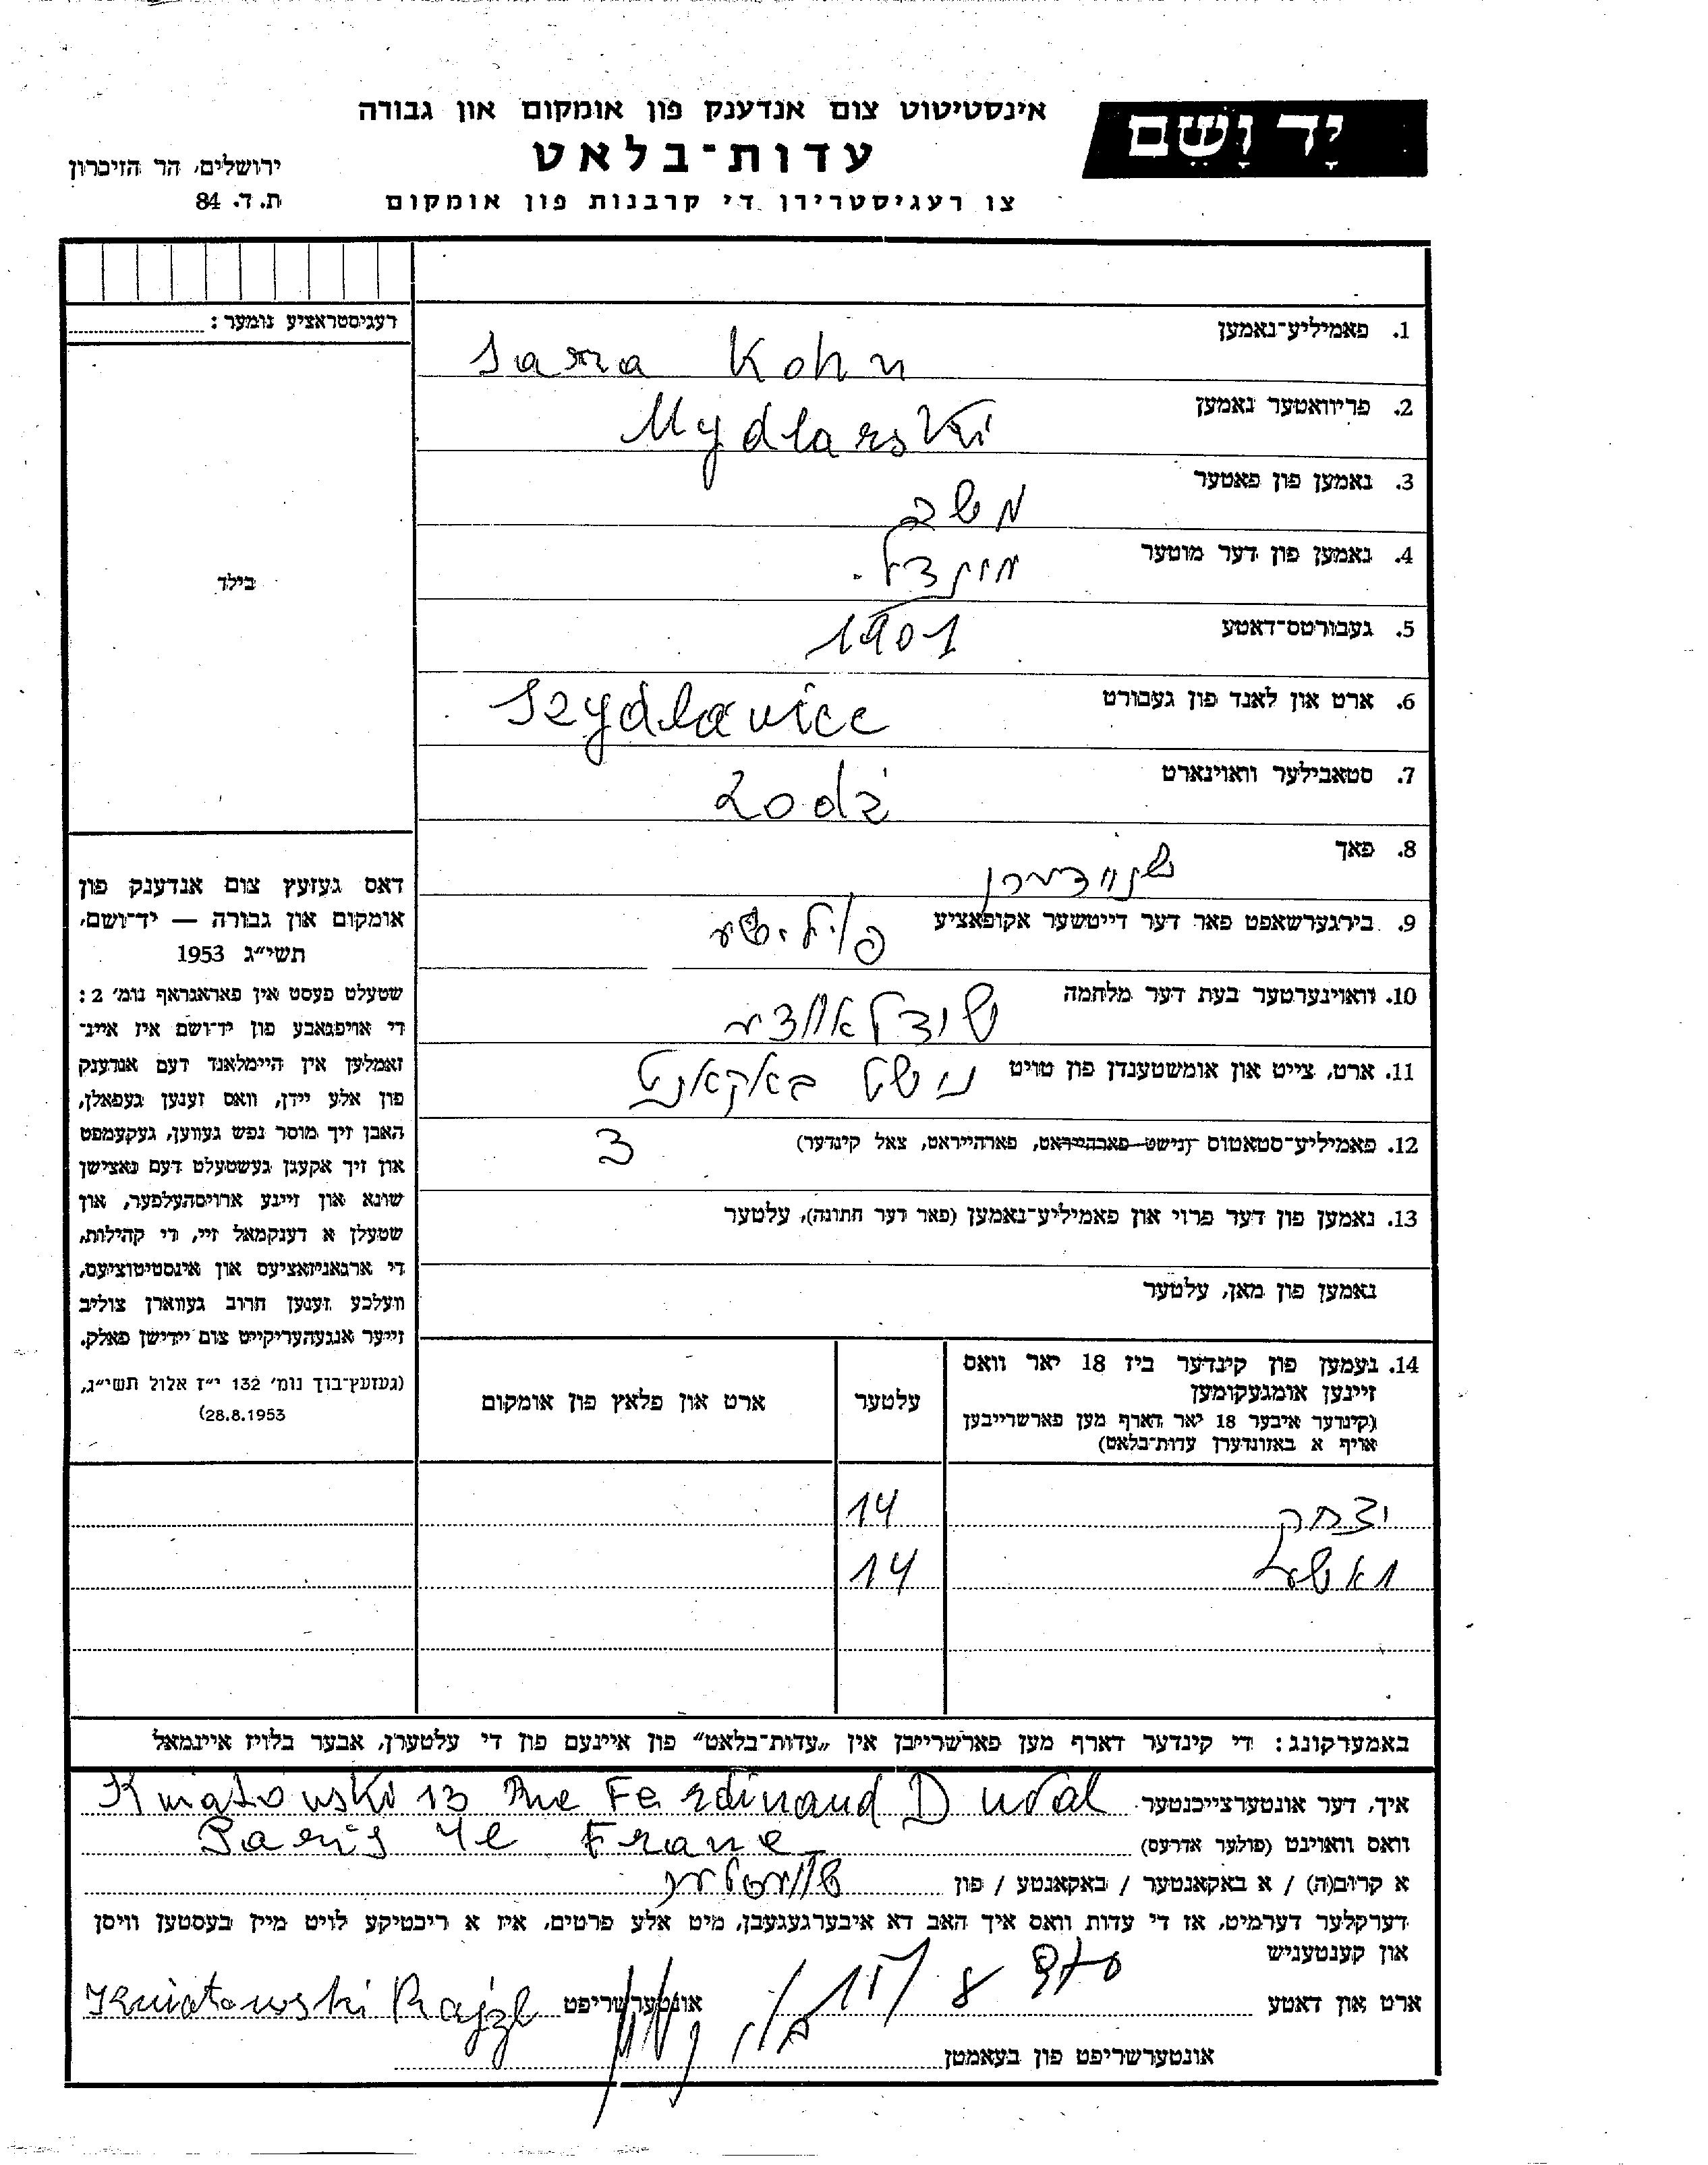 יָד וָשֵׁם
אינסטיטוט צום אנדענק פון אומקום און גבורה
עדות־בלאט
צו רעגיסטרירן די קרבנות פון אומקום
ירושלים, הר הזיכרון
ת. ד. 84
רעגיסטראציע נומער :
בילד
דאס געזעץ צום אנדענק פון
אומקום און גבורה — יד־ושם,
תשי״ג 1953
שטעלט פעסט אין פאראגראף נומ׳ 2 :
די אויפגאבע פון יד־ושם איז איינ־
זאמלען אין היימלאנד דעם אנדענק
פון אלע יידן, וואס זענען געפאלן,
האבן זיך מוסר נפש געווען, געקעמפט
און זיך אקעגן געשטעלט דעם נאצישן
שונא און זיינע ארויסהעלפער, און
שטעלן א דענקמאל זיי, די קהילות,
די ארגאניזאציעס און אינסטיטוציעס,
וועלכע זענען חרוב געווארן צוליב
זייער אנגעהעריקייט צום יידישן פאלק.
(געזעץ־בוך נומ׳ 132 י״ז אלול תשי״ג,
28.8.1953)
1. פאמיליע־נאמען Sara Kohn
2. פריוואטער נאמען Mydlarski
3. נאמען פון פאטער משב
4. נאמען פון דער מוטער
5. געבורטס־דאטע 1901
6. ארט און לאנד פון געבורט Szydlawice
7. סטאבילער וואוינארט Lodż
8. פאך שנײדערן
9. בירגערשאפט פאר דער דייטשער אקופאציע פוילישע
10. וואוינערטער בעת דער מלחמה שידלאװצע
11. ארט, צייט און אומשטענדן פון טויט נישט באקאנט
12. פאמיליע־סטאטוס (נישט פארהייראט, פארהייראט, צאל קינדער) 3
13. נאמען פון דער פרוי און פאמיליע־נאמען (פאר דער חתונה), עלטער
נאמען פון מאן, עלטער
14. נעמען פון קינדער ביז 18 יאר וואס
זיינען אומגעקומען
(קינדער איבער 18 יאר דארף מען פארשרייבען
אויף א באזונדערן עדות־בלאט)
עלטער
ארט און פלאץ פון אומקום
יצחק 14
14
באמערקונג : די קינדער דארף מען פארשרייבן אין „עדות־בלאט״ פון איינעם פון די עלטערן, אבער בלויז איינמאל
איך, דער אונטערצייכנטער Kwiatowski 13 Rue Ferdinand Duval
וואס וואוינט (פולער אדרעס) Paris 4e France
א קרוב(ה) / א באקאנטער / באקאנטע / פון שװעסטער
דערקלער דערמיט, אז די עדות וואס איך האב דא איבערגעגעבן, מיט אלע פרטים, איז א ריכטיקע לויט מיין בעסטען וויסן
און קענטעניש
ארט און דאטע אונטערשריפט Kwiatowski Rajzl
אונטערשריפט פון בעאמטן